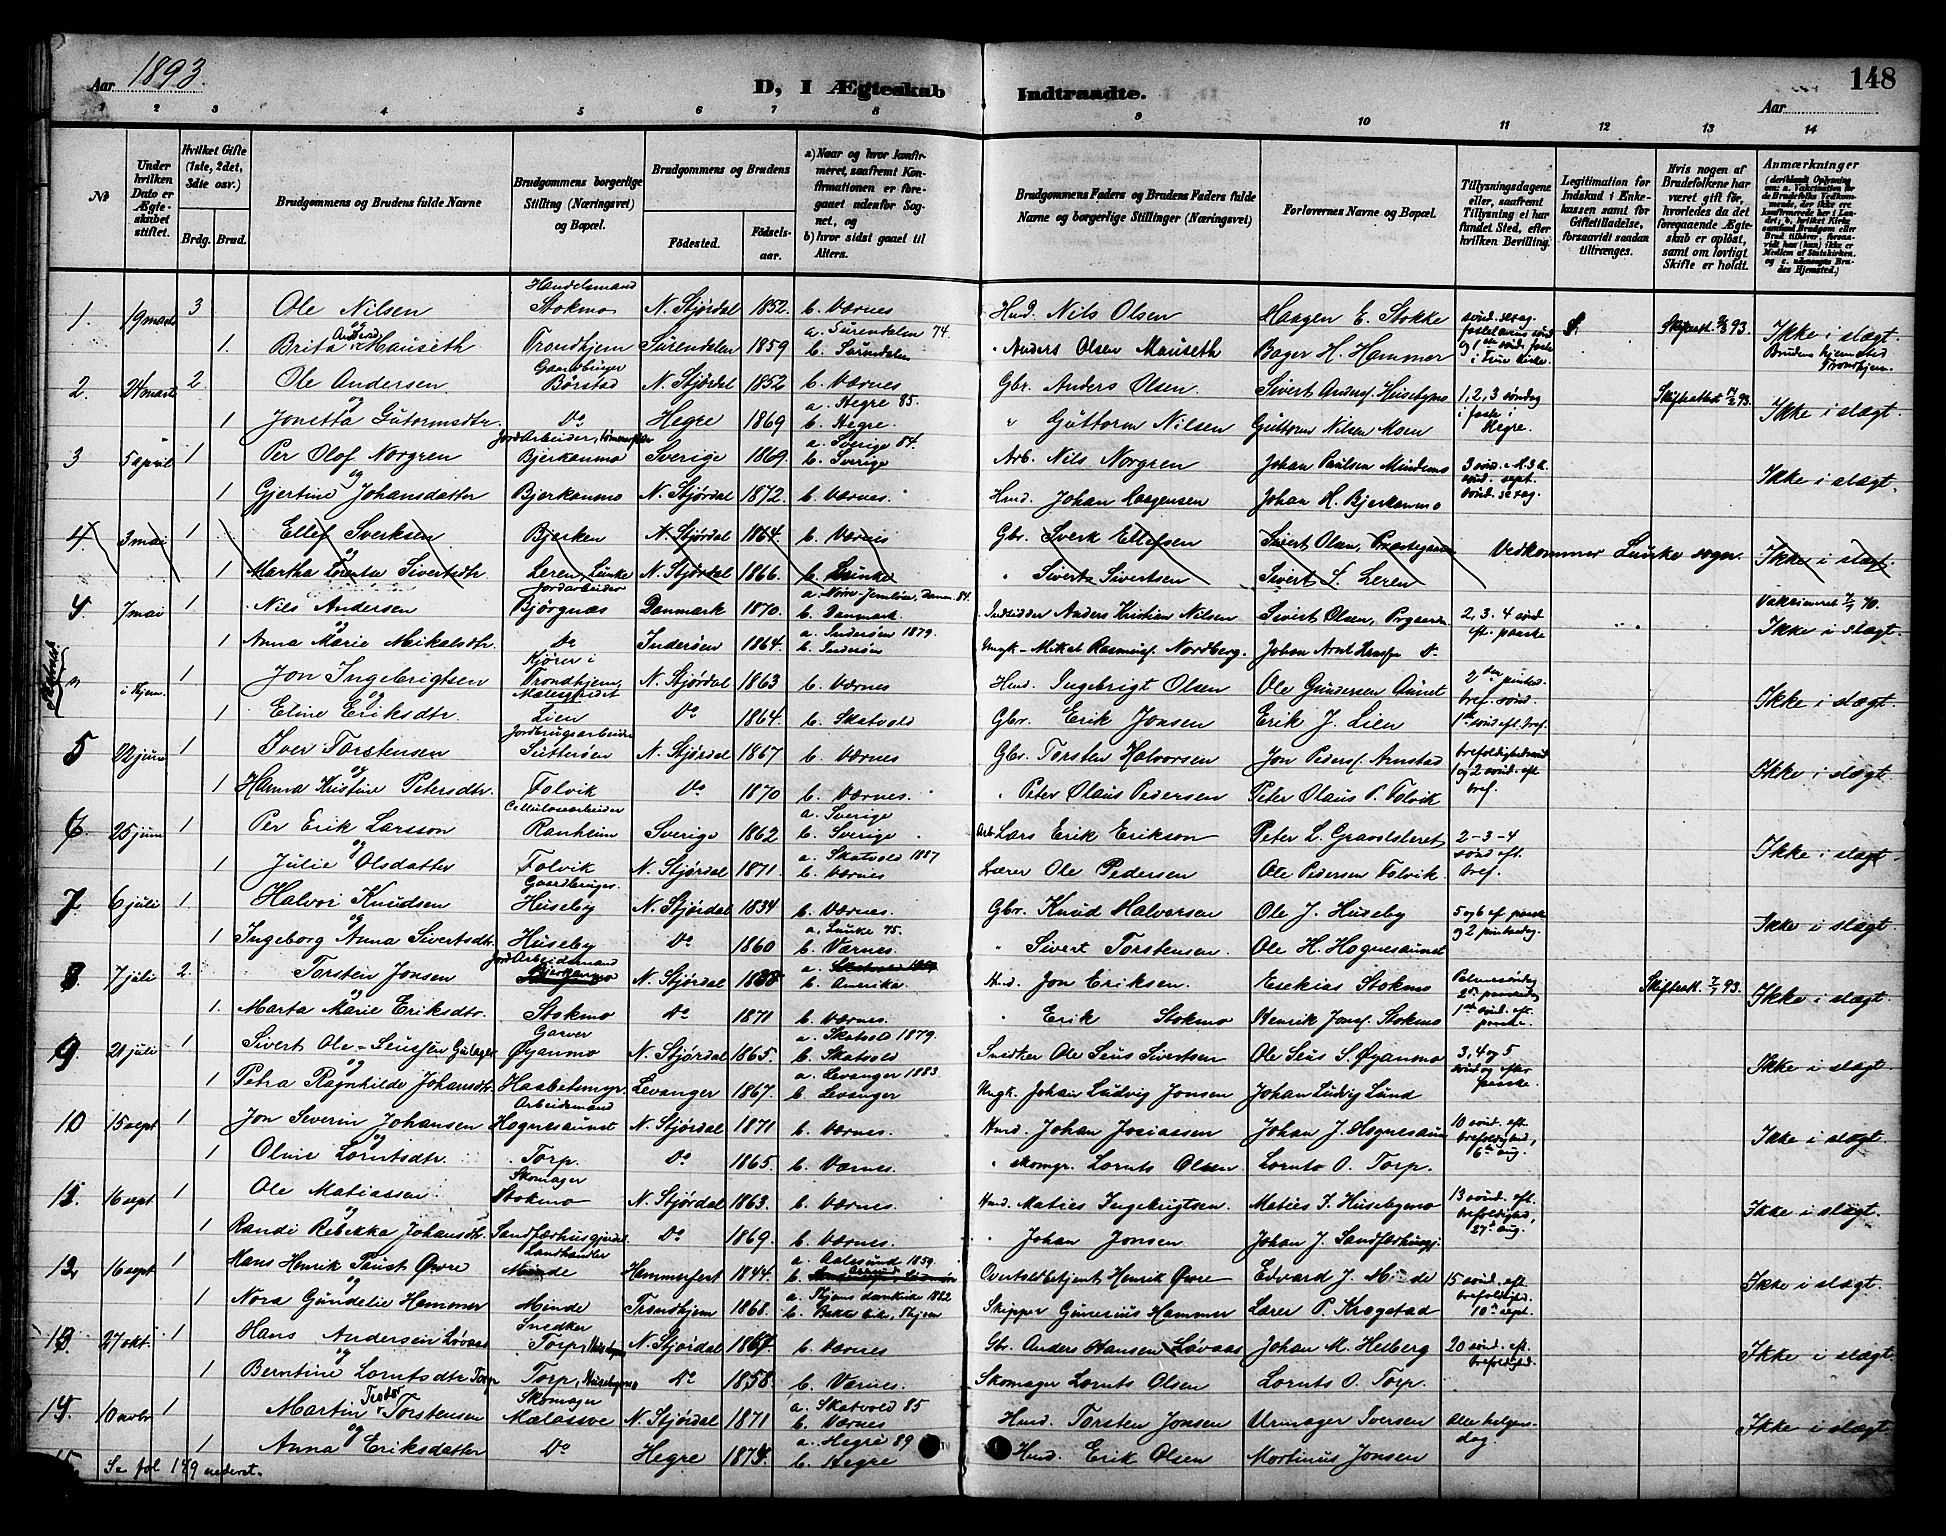 Aar 1893.
D, I Ægteskab Indtraadte.
148
Aar
1 2 3 4 5 6 7 8 9 10 11 12 13 14
No
Under hvilken Dato er Ægteskabet stiftet.
Hvilket Gifte (1ste, 2det, 3die osv.)
Brdg. Brud.
Brudgommens og Brudens fulde Navne
Brudgommens borgerlige Stilling (Næringsvei) og Bopæl.
Brudgommens og Brudens
Fødested. Fødselsaar.
a) Naar og hvor konfirmeret, saafremt Konfirmationen er foregaaet udenfor Sognet, og
b) hvor sidst gaaet til Alters.
Brudgommens Faders og Brudens Faders fulde Navne og borgerlige Stillinger (Næringsvei)
Forlovernes Navne og Bopæl.
Tillysningsdagene eller, saafremt Tillysning ei har fundet Sted, efter hvilken Bevilling.
Legitimation for Indskud i Enkekassen samt for Giftetilladelse, forsaavidt saadan tiltrænges.
Hvis nogen af Brudefolkene har været gift før, hvorledes da det foregaaende Ægteskab er opløst, samt om lovligt Skifte er holdt.
Anmærkninger
1. 19 marts 3 Ole Nilsen Handelsmand Stokmo N. Stjørdal 1852. b. Værnes Hmd. Nils Olsen Haagen E. Stokke Skifteatt. 93. Ikke i slægt.
og
1. Brita Mauseth Trondhjem Surendalen 1859 a. Surendalen 74. b. Surendalen " Anders Olsen Mauseth Bager H. Hammer i Frue Kirke Brudens hjemsted Trondhjem.
2. 24 marts 2 Ole Andersen Gaardbruger Børstad N. Stjørdal 1852 b. Værnes Gbr. Anders Olsen Sivert Anders. Husebymo 1, 2, 3 søndag i faste i Hegre. Skifteattest 93. Ikke i slægt.
og
1 Jonetta Gutormsdtr. Do Hegre 1869 a. Hegre 85. b. Hegre. " Guttorm Nilsen Guttorm Nilsen Moen
3 5 april 1 Per Olof Norgren Bjerkanmo Sverige 1869. a. Sverige 84. b. Sverige Arb. Nils Norgren Johan Paulsen Mindemo Ikke i slægt.
og
1 Gjertine Johansdatter Bjerkanmo N. Stjørdal 1872. b. Værnes Hmd. Johan Haagensen Johan H. Bjerkanmo
4 3 mai 1 Ellef Sverksen Bjerken N. Stjørdal 1864. b. Værnes Gbr. Sverk Ellefsen Sivert Olsen, Præstegaard Vedkommer Lunke sogn. Ikke i slægt.
og
1 Martha Lorentse Sivertsdtr Leren, Lunke N. Stjørdal 1866. b. Lunke " Sivert Sivertsen Sivert S. Leren
4. 7 mai 1 Nils Andersen Jordarbeider Bjørgnæs Danmark 1870. b. Danmark. Indsidder Anders Kristian Nilsen Sivert Olsen, Prgaard 2. 3. 4 sønd. eft. paaske Vaksineret 70. Ikke i slægt.
og
1 Anna Marie Mikalsdtr Do Inderøen 1864. a. Inderøen 1879. b. Inderøen Ungk. Mikal Rasmus. Nordberg. Johan Arnt Hansen Do
i Thjem. 1 Jon Ingebrigtsen Kjører i Trondhjem, N. Stjørdal 1863 b. Værnes Hmd. Ingebrigt Olsen Ole Gundersen Aunet Ikke i slægt.
og
1 Eline Eriksdtr. Lien Do 1864. b. Skatvold Gbr. Erik Jonsen Erik J. Lien
5 22 juni 1 Iver Torstensen Jordbrugsarbeider Sutterøen N. Stjørdal 1867 b. Værnes Gbr. Torsten Halvorsen Jon Peders. Arnstad 1 og 2 sønd. eft. tref. Ikke i slægt.
og
1 Hanna Kristine Petersdtr. Folvik Do 1870 b. Værnes. " Peter Olaus Pedersen Peter Olaus P. Folvik
6. 25 juni 1 Per Erik Larsson Cellulosearbeider Ranheim Sverige 1862 a. Sverige b. Sverige Arb. Lars Erik Erikson Peter L. Gravdsleret 2-3-4 sønd eft. tref. Ikke i slægt.
og
1 Julie Olsdatter Folvik N. Stjørdal 1871 a. Skatvold 1887 b. Værnes Lærer Ole Pedersen Ole Pedersen Folvik.
7. 6 juli 1. Halvor Knudsen Gaardbruger. Huseby N. Stjørdal 1834 b. Værnes. Gbr. Knud Halvorsen Ole J. Huseby 5 og 6 ef. paaske og 2 pinsedag. Ikke i slægt.
og
1 Ingeborg Anna Sivertsdtr. Huseby Do 1860 a. Lunke 75. b. Værnes. " Sivert Torstensen Ole H. Hognesaunet
8. 7 juli 2. Torsten Jonsen Jord Arbeidsmand Bjerkanmo N. Stjørdal 1868. b. Amerika. Hmd. Jon Eriksen. Esekias Stokmo Palmesøndag 2den paaskedag 1ste sønd. eft. paaske. Skifteatt. 93. Ikke i slægt.
og
1. Marta Marie Eriksdtr. Stokmo Do 1871 b. Værnes. " Erik Stokmo Henrik Jons. Stokmo
9 21 juli 1 Sivert Ole-Seusen Gulager Garver Øyanmo N. Stjørdal 1865. a. Skatvold 1879. b. Skatvold Snedker Ole Seus Sivertsen Ole Seus S. Øyanmo 3, 4 og 5 søndag efter paaske Ikke i slægt.
og
1 Petra Ragnhilde Johansdtr. Haabetsmyr. Levanger 1867. a. Levanger 1883. b. Levanger Ungk. Johan Ludvig Jonsen Johan Ludvig Lund
10 15 sept 1 Jon Severin Johansen Arbeidsmand Hognesaunet N. Stjørdal 1871 b. Værnes. Hmd. Johan Josiassen Johan J. Hognesaun 10 sønd. eft. trefoldighed, 16de aug. Ikke i slægt.
og
1 Oline Lorntsdtr. Torp. Do 1865. b. Værnes. " Skomgr. Lornts Olsen Lornts O. Torp.
15. 16 sept 1 Ole Matiassen Skomager Stokmo N. Stjørdal 1863. b. Værnes. Hmd. Matias Ingebrigtsen. Matias I. Husebymo 13 sønd. eft. trefoldighed, 27de aug. Ikke i slægt.
og
1 Randi Rebekka Johansdtr. Sandfærhusgjerdet. Do 1869. b. Værnes. " Johan Jonsen Johan J. Sandfærhusgj.
12. 16 sept 1 Hans Henrik Faust Øvre Landhandler Minde Hammerfest 1844. a. Aalesund 1859. Overtoldbetjent Henrik Øvre Edvard J. Minde 15 sønd. eft. trefoldighed. 10de sept. Ikke i slægt.
og
1 Nora Gundelie Hammer Minde Trondhjem 1868. a. Thjems domkirke 1882 b. Bakke kirke, Thjem Skipper Gunerius Hammer Lærer P. Krogstad
13. 27 okt. 1 Hans Andersen Løvaas Snedker Torp, Husebymo N. Stjørdal b. Værnes Gbr. Anders Hansen Løvaas Johan M. Helberg 20 sønd. eft. trefoldighed. Ikke i slægt.
og
1 Berntine Lorntsdtr Torp Torp, Husebymo Do 1858. b. Værnes. Skomager Lornts Olsen Lornts O. Torp.
14. 10 novbr 1 Martin Teodor Torstensen Skomager Mælassve N. Stjørdal 1871 a. Skatvold 85 b. Værnes Hmd. Torsten Jonsen Urmager Iversen Alle helgensdag. Ikke i slægt
og
1 Anna Eriksdatter Do Hegre a. Hegre 89 b. Hegre Hmd. Erik Olsen Martinus Jonsen
15. Se fol 149 nederst.